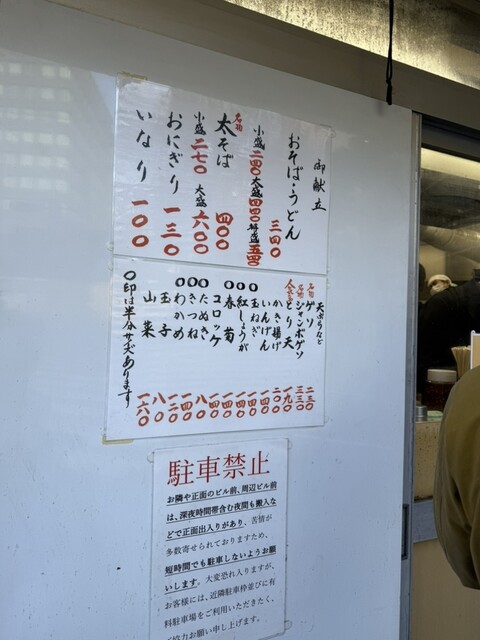 御献立
おそば・うどん 三四〇
小盛 二四〇 大盛 四四〇 特盛 五四〇
名物 太そば 四〇〇
小盛 二七〇 大盛 六〇〇
おにぎり 一三〇
いなり 一〇〇
天ぷらなど
名物 ゲソ 二三〇
名物 ジャンボゲソ 三三〇
とり天 一九〇
かき揚げ 二〇〇
いんげん 一四〇
〇玉ねぎ 一四〇
〇紅しょうが 一四〇
〇春菊 一四〇
コロッケ 一四〇
〇たぬき 八〇
〇きつね 一四〇
〇わかめ 一二〇
玉子 八〇
山菜 一六〇
〇印は半分サイズあります
駐車禁止
お隣や正面のビル前、周辺ビル前
は、深夜時間帯含む夜間も搬入な
どで正面出入りがあり、苦情が
多数寄せられておりますため、
短時間でも駐車しないようお願
いします。大変恐れ入りますが、
お客様には、近隣駐車枠並びに有
料駐車場をご利用いただきたく、
ご協力お願い申し上げます。